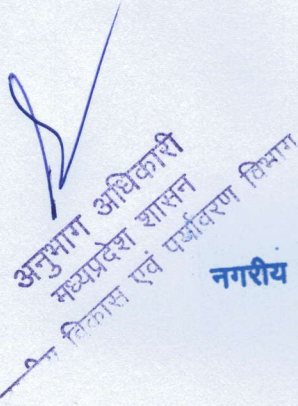 अनुभाग अधिकारी
मध्यप्रदेश शासन
विकास एवं पर्यावरण विभाग
नगरीय